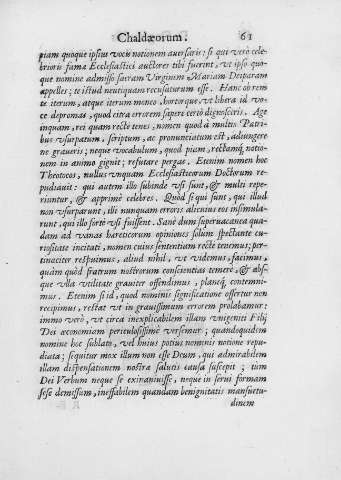 Chaldæorum. 61
piam quoque ipsius vocis notionem auersaris: si qui verò cele-
brioris famæ Ecclesiastici auctores tibi fuerint, vt ipso quo-
que nomine admisso sacram Virginem Mariam Deiparam
appelles; te ictud neutiquam recusaturum esse. Hanc ob rem
te iterum, atque iterum moneo, hortorque, vt libera id vo-
ce depromas, quod citra errorem sapere certò dignosceris. Age
inquam, rei quam rectè tenes, nomen quod à multis Patri-
bus vsurpatum, scriptum, ac pronunciatum est, adiungere
ne graueris; neque vocabulum, quod piam, rectamq; notio-
nem in animo gignit; refutare pergas. Etenim nomen hoc
Theotocos, nullus vnquam Ecclesiasticorum Doctorum re-
pudiauit: qui autem illo subinde vsi sunt, & multi repe-
riuntur, & apprimè celebres. Quod si qui sunt, qui illud
non vsurparunt, illi nunquam erroris alicuius eos insimula-
runt, qui illo fortè vsi fuissent. Sanè dum superuacanea quæ-
dam ad vanas hæreticorum opiniones solùm spectante cu-
riositate incitati, nomen cuius sententiam rectè tenemus; per-
tinaciter respuimus, aliud nihil, vt videmus, facimus,
quàm quòd fratrum nostrorum conscientias temerè, & abs-
que vlla vtilitate grauiter offendimus, planeq; contemni-
mus. Etenim si id, quod nominis significatione offertur non
recipimus, restat vt in grauissimum errorem prolabamur:
immo verò, vt circa inexplicabilem illam vnigeniti Filij
Dei œconomiam periculosissimè versemur; quandoquidem
nomine hoc sublato, vel huius potius nominis notione repu-
diata; sequitur mox illum non esse Deum, qui admirabilem
illam dispensationem nostræ salutis causa suscepit; tum
Dei Verbum neque se exinaniuisse, neque in serui formam
sese demissum, ineffabilem quandam benignitatis mansuetu-
dinem